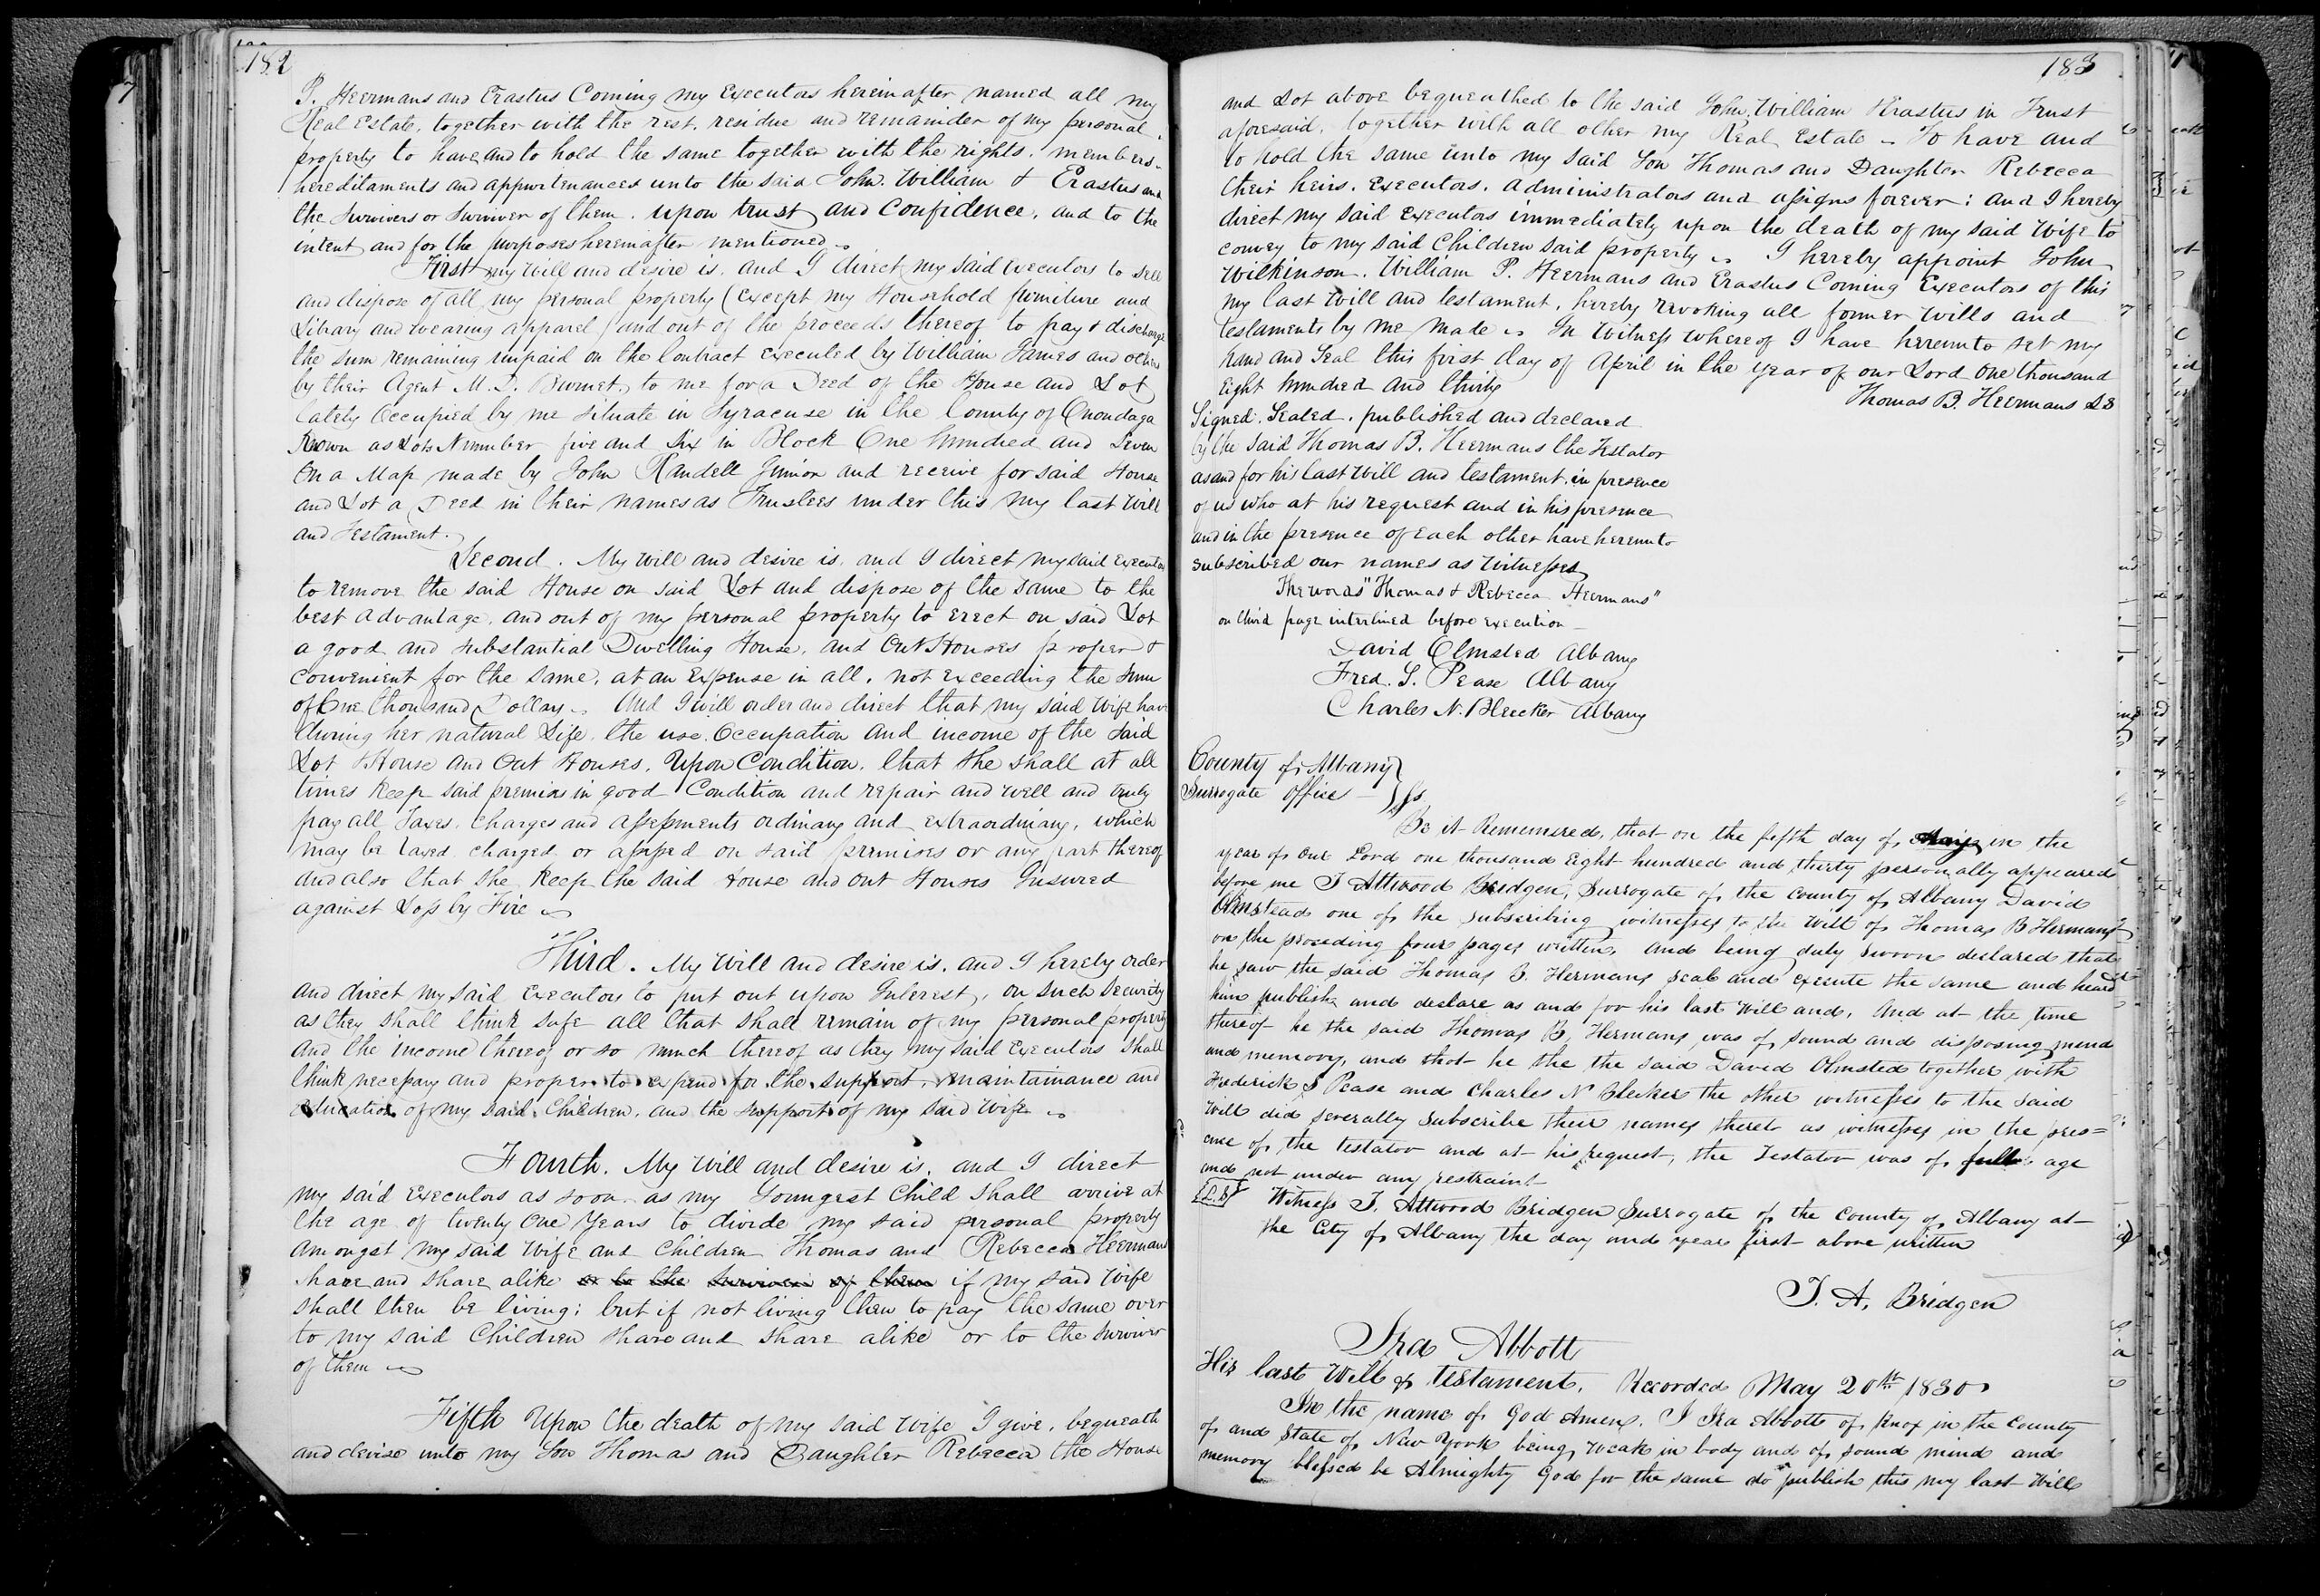 182
P. Heermans and Erastus Corning my Executors hereinafter named all my
Real Estate, together with the rest, residue and remainder of my personal
property to have and to hold the same together with the rights, members,
hereditaments and appurtenances unto the said John, William & Erastus and
the survivers or surviver of them, upon trust and confidence, and to the
intent and for the purposes hereinafter mentioned
First my will and desire is, and I direct my said executors to sell
and dispose of all my personal property (except my Household furniture and
Library and wearing apparel) and out of the proceeds thereof to pay & discharge
the sum remaining unpaid on the Contract executed by William James and others
by their Agent M. D. Burnet, to me for a Deed of the House and Lot
lately occupied by me situate in Syracuse in the County of Onondaga
Known as Lots Number five and six in Block One hundred and Seven
on a Map made by John Randell Junior and receive for said House
and Lot a Deed in their names as Trustees under this my last Will
and Testament.
Second. My will and desire is, and I direct my said executors
to remove the said House on said Lot and dispose of the same to the
best advantage, and out of my personal property to erect on said Lot
a good and substantial Dwelling House, and Out Houses proper &
convenient for the same, at an expense in all, not exceeding the sum
of One thousand Dollars. And I will order and direct that my said Wife have
during her natural Life, the use, Occupation and income of the said
Lot & House and Out Houses, Upon Condition, that she shall at all
times keep said premises in good Condition and repair and well and truly
pay all Taxes, charges and assessments ordinary and extraordinary, which
may be taxed charged or assessed on said premises or any part thereof
and also that she keep the said House and Out Houses Insured
against Loss by Fire
Third. My will and desire is, and I hereby order
and direct my said Executors to put out upon Interest, on such Security
as they shall think safe all that shall remain of my personal property
and the income thereof or so much thereof as they my said Executors shall
think necessary and proper to expend for the support, maintainance and
education of my said Children, and the support of my said Wife
Fourth. My will and desire is, and I direct
my said executors as soon as my Youngest Child shall arrive at
the age of twenty One Years to divide my said personal property
amongst my said Wife and Children Thomas and Rebecca Heermans
share and share alike or to the survivors of them if my said Wife
shall then be living; but if not living then to pay the same over
to my said Children share and share alike or to the surviver
of them
Fifth Upon the death of my said Wife I give, bequeath
and devise unto my Son Thomas and Daughter Rebecca the House
183
and Lot above bequeathed to the said John, William & Erastus in Trust
aforesaid, together with all other my Real Estate. To have and
to hold the same unto my said Son Thomas and Daughter Rebecca
their heirs, executors, administrators and assigns forever; and I hereby
direct my said executors immediately upon the death of my said Wife to
convey to my said Children said property. I hereby appoint John
Wilkinson, William P. Heermans and Erastus Corning Executors of this
my last will and testament, hereby revoking all former wills and
testaments by me made. In Witness whereof I have hereunto set my
hand and Seal this first day of April in the year of our Lord One thousand
Eight hundred and thirty
Thomas B. Heermans LS
Signed, Sealed, published and declared
by the said Thomas B. Heermans the Testator
as and for his last will and testament, in presence
of us who at his request and in his presence
and in the presence of each other have hereunto
subscribed our names as Witnesses
The words "Thomas & Rebecca Heermans"
on third page interlined before execution
David Olmsted Albany
Fred. S. Pease Albany
Charles N. Bleecker Albany
County of Albany
Surrogate office } ss
Be it Remembered, that on the fifth day of May in the
year of our Lord one thousand Eight hundred and thirty personally appeared
before me T Attwood Bridgen, Surrogate of the County of Albany David
Olmstead one of the subscribing witnesses to the Will of Thomas B Hermans
on the preceding four pages written, and being duly sworn declared that
he saw the said Thomas B. Hermans seal and execute the same and heard
him publish and declare as and for his last will and, And at the time
thereof he the said Thomas B. Hermans was of sound and disposing mind
and memory, and that he the the said David Olmsted together with
Frederick S Pease and Charles N Bleeker the other witnesses to the said
Will did severally subscribe their names thereto as witnesses in the pres=
ence of the testator and at his request, the Testator was of full age
and not under any restraint
L.S Witness T. Attwood Bridgen Surrogate of the County of Albany at
the City of Albany the day and year first above written
T. A. Bridgen
Ira Abbott
His last Will & testament. Recorded May 20th 1830
In the name of God Amen, I Ira Abbott of Knox in the County
of and State of New York being weak in body and of sound mind and
memory blessed be Almighty God for the same do publish this my last Will